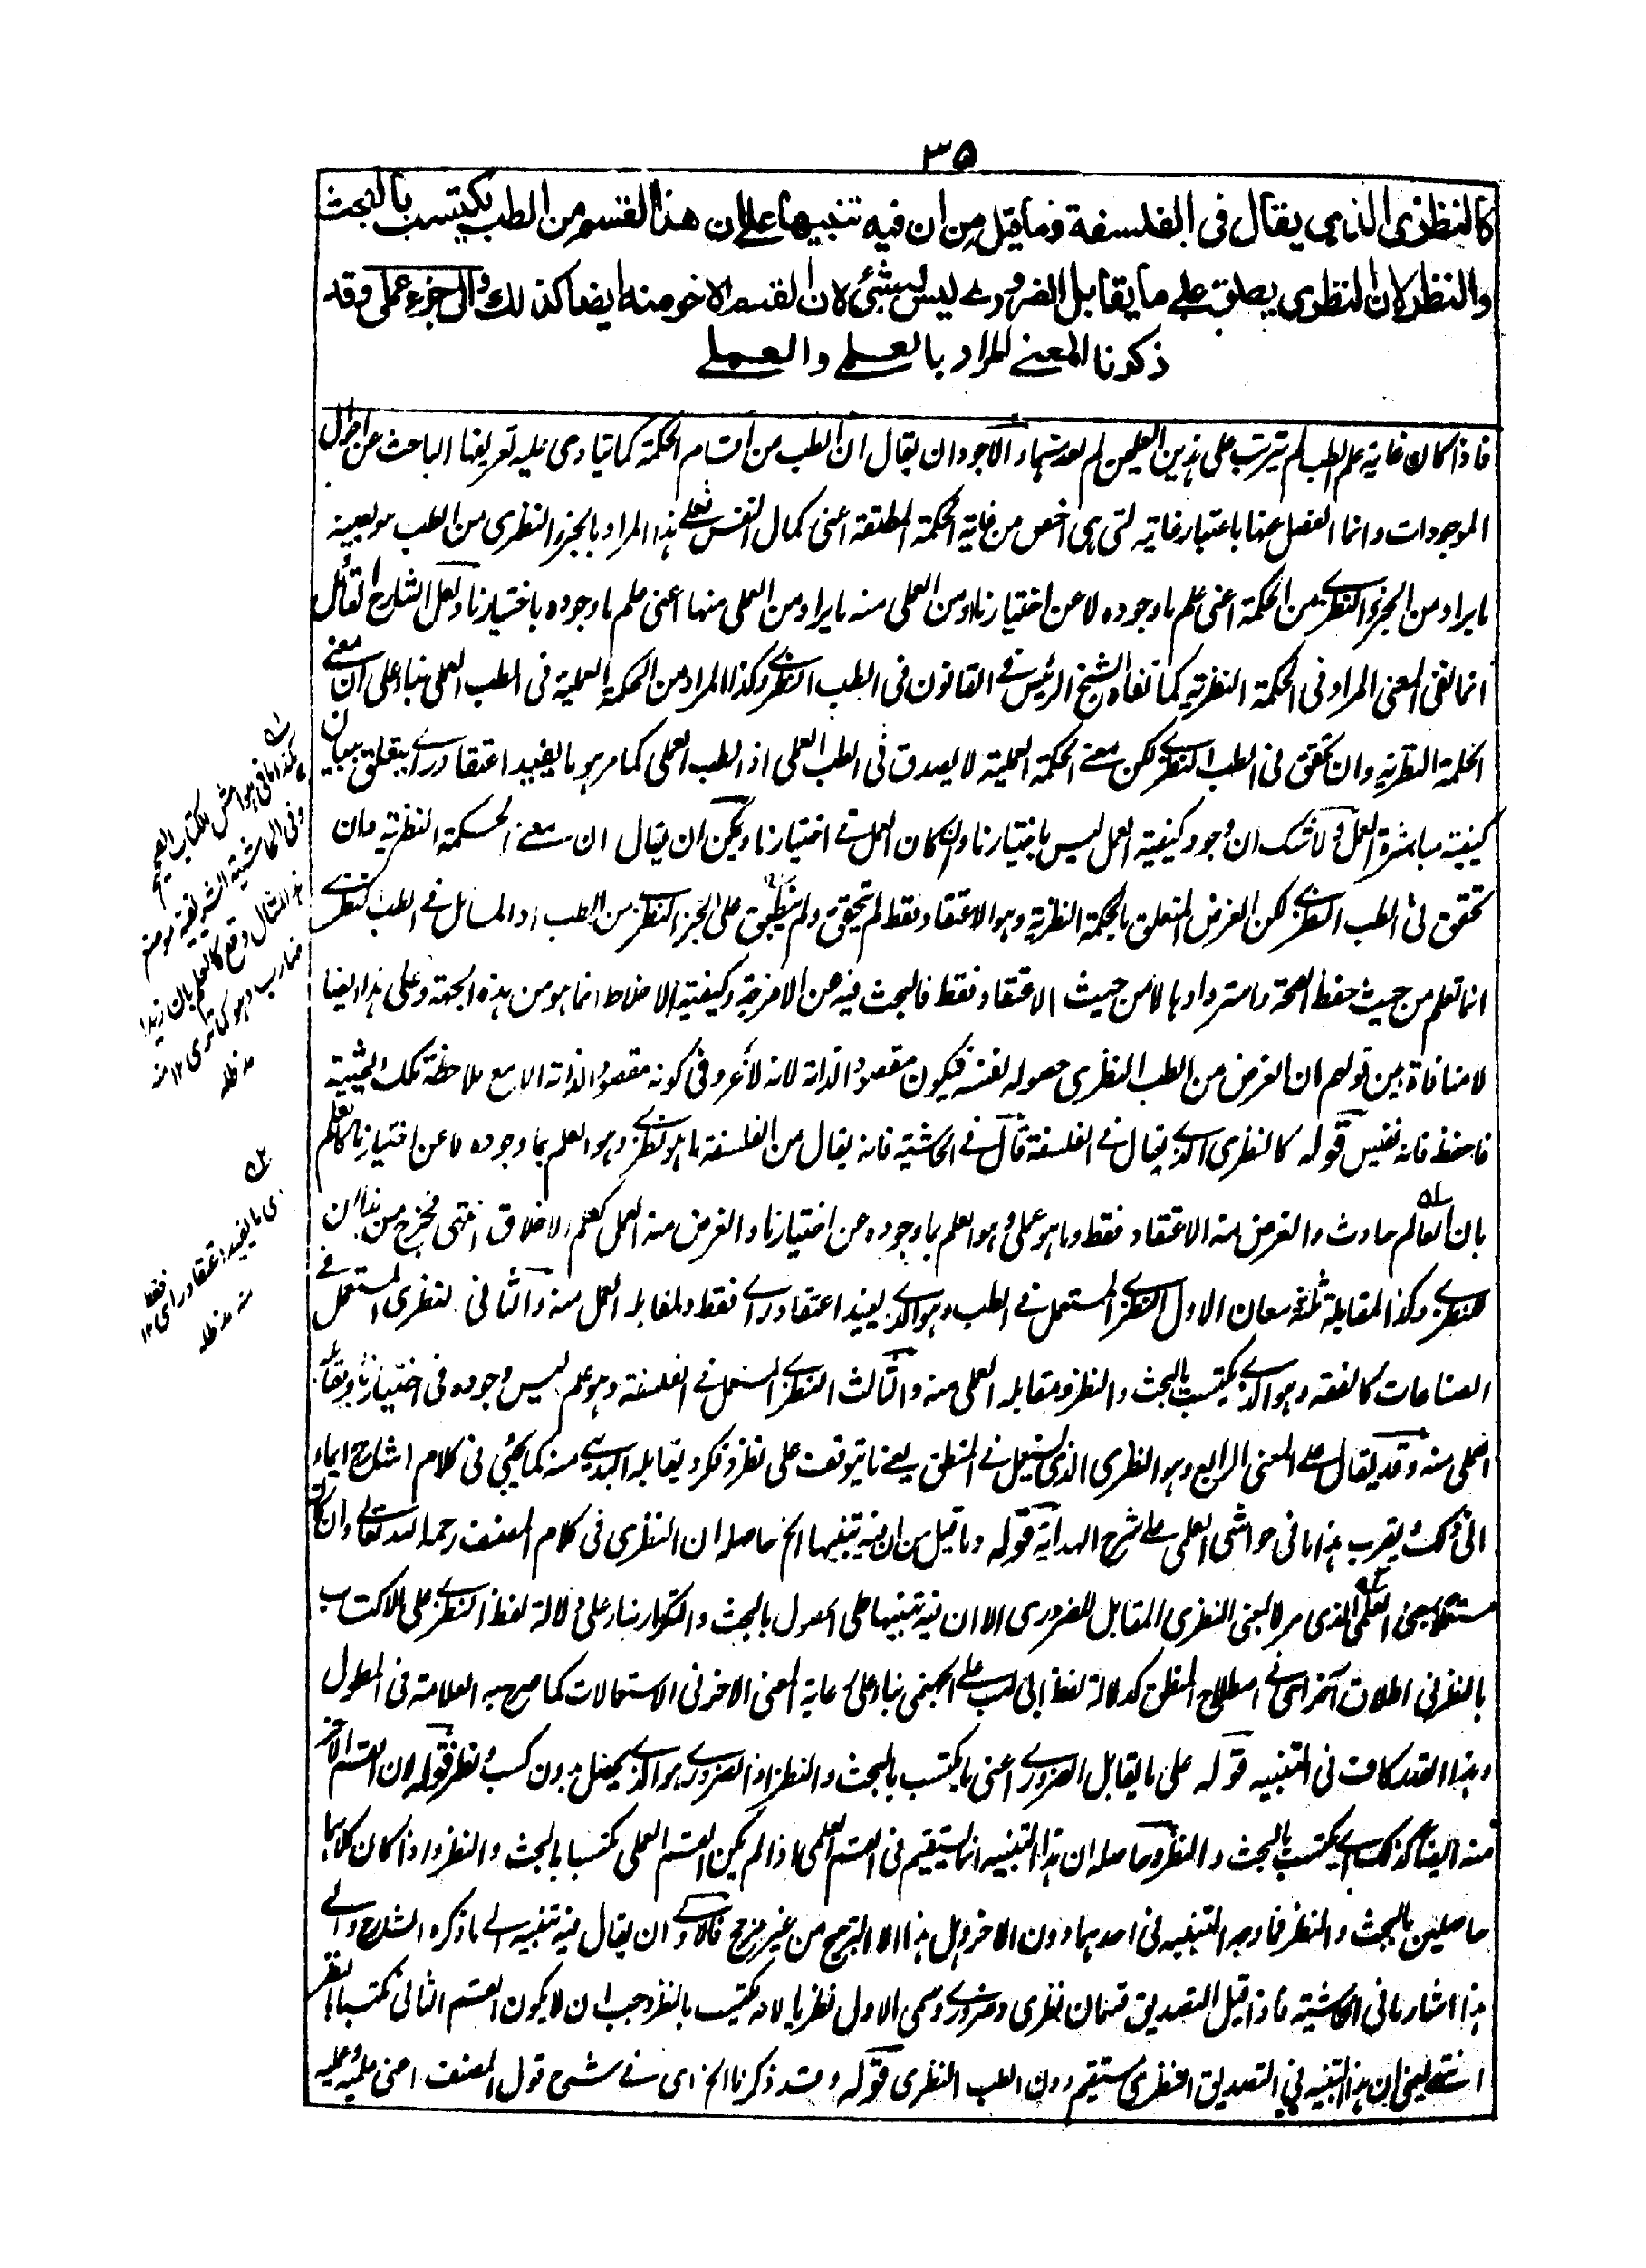 ٣٥
كالنظري الذي يقال فى الفلسفة وما قيل من ان فيه تنبيها على ان هذا القسم من الطب يكتسب بالبحث
والنظر لان النظري يطلق على ما يقابل الضروري ليس بشئ لان القسم الاخر منه ايضا كذلك والى جزء عملى وقد
ذكرنا المعنى المراد بالعلمى والعملى
فاذا كان غاية علم الطب لم تترتب على هذين العلمين لم يعد منهما والاجود ان يقال ان الطب من اقسام الحكمة كما ينادى عليه تعريفها الباحث عن احوال
الموجودات وانما الفصل عنها باعتبار غايته التى هى اخص من غاية الحكمة المطلقة اعنى كمال النفس فعلى هذا المراد بالجزء النظرى من الطب هو بعينه
ما يراد من الجزء النظرى من الحكمة اعنى علم ما وجوده لا عن اختيارنا ومن العملى منه ما يراد من العملى منها اعنى علم ما وجوده باختيارنا ولعل الشارح القائل
انما نفى المعنى المراد فى الحكمة النظرية كما نفاه الشيخ الرئيس فى القانون فى الطب النظرى وكذا المراد من الحكمة العملية فى الطب العملى بناء على ان معنى
الحكمة النظرية وان تحقق فى الطب النظرى لكن معنى الحكمة العملية لا يصدق فى الطب العملى اذ الطب العملى كما مر هو ما يفيد اعتقاد راى يتعلق ببيان
كيفية مباشرة العمل ولا شك ان وجود كيفية العمل ليس باختيارنا وان كان العمل فى اختيارنا ويمكن ان يقال ان معنى الحكمة النظرية وان
تحقق فى الطب النظرى لكن الغرض المتعلق بالحكمة النظرية وهو الاعتقاد فقط لم يتحقق ولم ينطبق على الجزء النظرى من الطب اذ المسائل فى الطب النظرى
انما تعلم من حيث حفظ الصحة واستردادها لا من حيث الاعتقاد فقط فالبحث فيه عن الامزجة وكيفية الاخلاط انما هو من هذه الجهة وعلى هذا ايضا
لا منافاة بين قولهم ان الغرض من الطب النظرى حصوله لنفسه فيكون مقصودا لذاته لانه لا غرو فى كونه مقصودا لذاته الا مع ملاحظة تلك الحيثية
فاحفظ فانه نفيس قوله كالنظرى الذى يقال فى الفلسفة قال فى الحاشية فانه يقال من الفلسفة ما هو نظرى وهو العلم بما وجوده لا عن اختيارنا كالعلم
بان العالم حادث والغرض منه الاعتقاد فقط وما هو عملى وهو العلم بما وجوده عن اختيارنا والغرض منه العمل كعلم الاخلاق انتهى فخرج من هذا ان
للنظرى وكذا المقابلة ثلثة معان الاول النظرى المستعمل فى الطب وهو الذى يفيد اعتقاد راى فقط ولمقابله العمل منه والثانى النظرى المستعمل فى
الصناعات كالفقه وهو الذى يكتسب بالبحث والنظر ومقابله العملى منه والثالث النظرى المستعمل فى الفلسفة وهو علم ليس وجوده فى اختيارنا ويقابله
العملى منه وقد يقال على المعنى الرابع وهو النظرى الذى يستعمل فى المنطق يعنى ما يتوقف على نظر وفكر ويقابله البديهى منه كما يجئ فى كلام الشارح ايماء
الى ذلك ويقرب هذا ما فى حواشى العلمى على شرح الهداية قوله وما قيل من ان فيه تنبيها الخ حاصله ان النظرى فى كلام المصنف رحمه الله تعالى وان كان
مستعملا بمعنى العلمى الذى مر لا بمعنى النظرى المقابل للضرورى الا ان فيه تنبيها على الحصول بالبحث والتكرار بناء على دلالة لفظ النظرى على الاكتساب
بالنظر فى اطلاق آخر اى فى اصطلاح المنطق كدلالة لفظ ابى لهب على الجهنمى بناء على رعاية المعنى الاخر فى الاستعمالات كما صرح به العلامة فى المطول
وهذا القدر كاف فى التنبيه قوله على ما يقابل الضرورى اعنى ما يكتسب بالبحث والنظر اذ الضرورى هو الذى يحصل بدون كسب ونظر قوله لان القسم الاخر
منه ايضا كذلك اى يكتسب بالبحث والنظر وحاصله ان هذا التنبيه انما يستقيم فى القسم العلمى اذا لم يكن القسم العملى مكتسبا بالبحث والنظر واذا كان كلاهما
حاصلين بالبحث والنظر فما وجه التنبيه فى احدهما دون الاخر وهل هذا الا الترجيح من غير مرجح فالاولى ان يقال فيه تنبيه الى ما ذكره الشارح والى
هذا اشار ما فى الحاشية فاذا قيل التصديق قسمان نظرى وضرورى وسمى الاول نظريا لانه مكتسب بالنظر وجب ان لا يكون القسم الثانى مكتسبا بالنظر
انتهى يعنى ان هذا التنبيه فى التصديق النظرى مستقيم دون الطب النظرى قوله وقد ذكرنا الخ اى فى شرح قول المصنف اعنى علميه وعمليه
هكذا فى هوامش الكتاب
وفى الحاشية الشريفية
هذا المثال وقع كالعلم بان زيدا
ضارب وهو كما ترى ١٢ منه
مد ظله
اى ما يفيد اعتقاد راى فقط ١٢
منه مد ظله